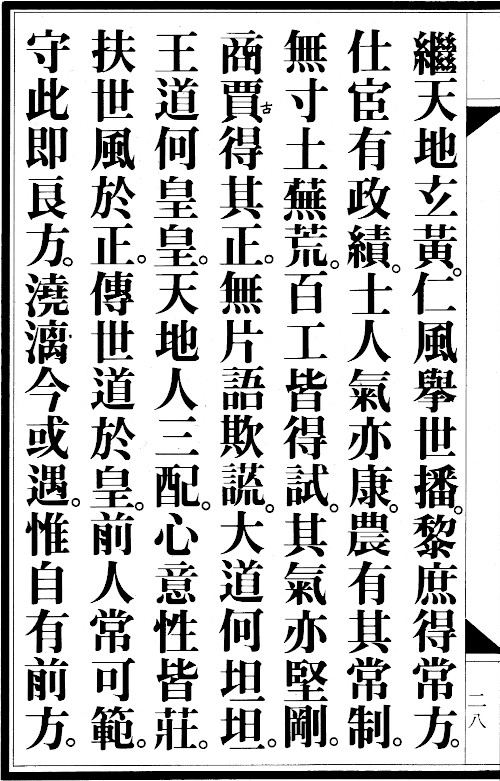 繼天地立黃。仁風舉世播。黎庶得常方。
仕宦有政績。士人氣亦康。農有其常制。
無寸土蕪荒。百工皆得試。其氣亦堅剛。
商賈古得其正。無片語欺謊。大道何坦坦。
王道何皇皇。天地人三配。心意性皆莊。
扶世風於正。傳世道於皇。前人常可範。
守此即良方。澆漓今或遇。惟自有前方。
二八